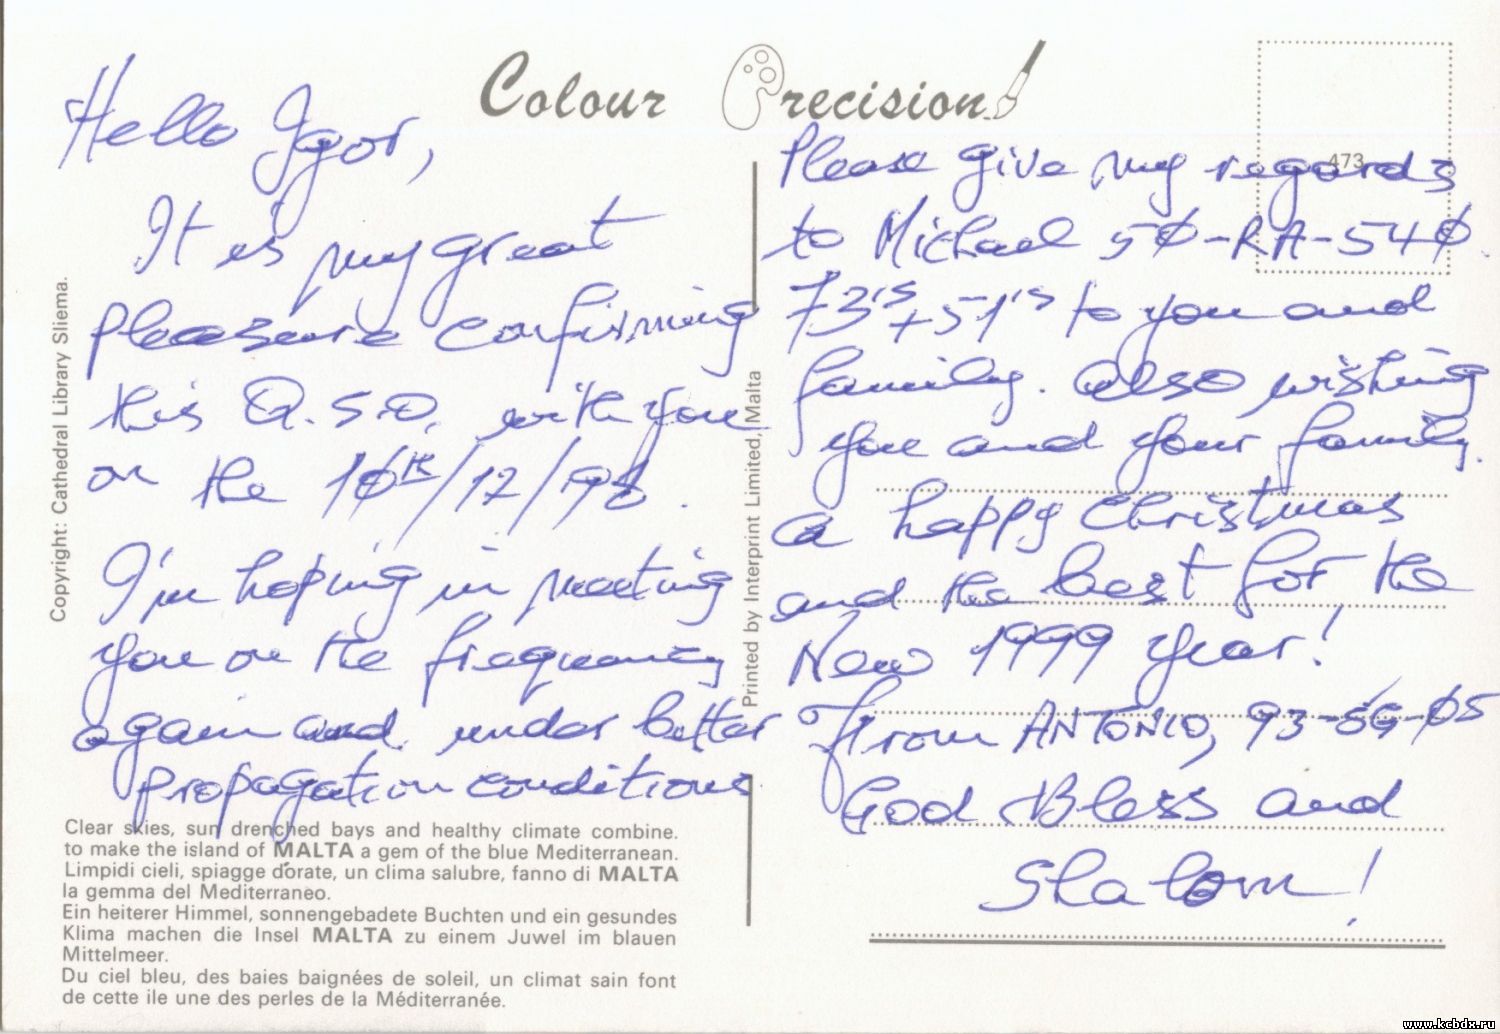 Colour Precision
Hello Igor,
It is my great
pleasure confirming
this Q.S.O. with you
on the 10th/12/98.
I'm hoping in meeting
you on the frequency
again and under better
propagation conditions
473
Please give my regards
to Michael 5Ø-RA-54Ø.
73's + 51's to you and
family. also wishing
you and your family.
a happy Christmas
and the best for the
New 1999 year!
From ANTONIO, 93-SG-Ø5
God Bless and
Shalom!
Copyright: Cathedral Library Sliema.
Printed by Interprint Limited, Malta
Clear skies, sun drenched bays and healthy climate combine.
to make the island of MALTA a gem of the blue Mediterranean.
Limpidi cieli, spiagge dorate, un clima salubre, fanno di MALTA
la gemma del Mediterraneo.
Ein heiterer Himmel, sonnengebadete Buchten und ein gesundes
Klima machen die Insel MALTA zu einem Juwel im blauen
Mittelmeer.
Du ciel bleu, des baies baignées de soleil, un climat sain font
de cette ile une des perles de la Méditerranée.
www.kcbdx.ru